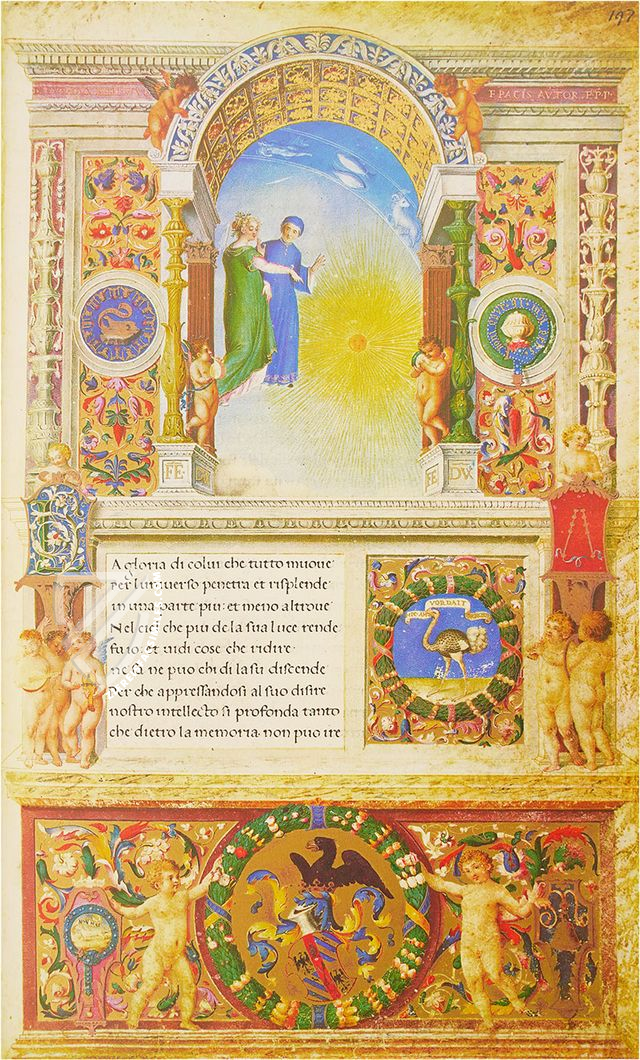 197
E PACIS AVTOR
FE
FE DVX
VORDAIT
A gloria di colui che tutto muove
per l uniuerso penetra et risplende
in una parte piu: et meno altroue
Nel ciel che piu de la sua luce rende
fu io: et uidi cose che ridire
ne sa ne puo chi di la su discende
Per che appressandosi al suo disire
nostro intellecto si profonda tanto
che dietro la memoria non puo ire